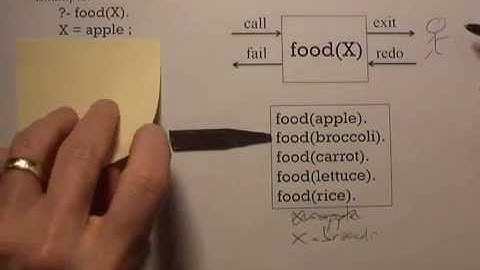 ?- food(X).
X = apple ;
call
exit
fail
redo
food(X)
food(apple).
food(broccoli).
food(carrot).
food(lettuce).
food(rice).